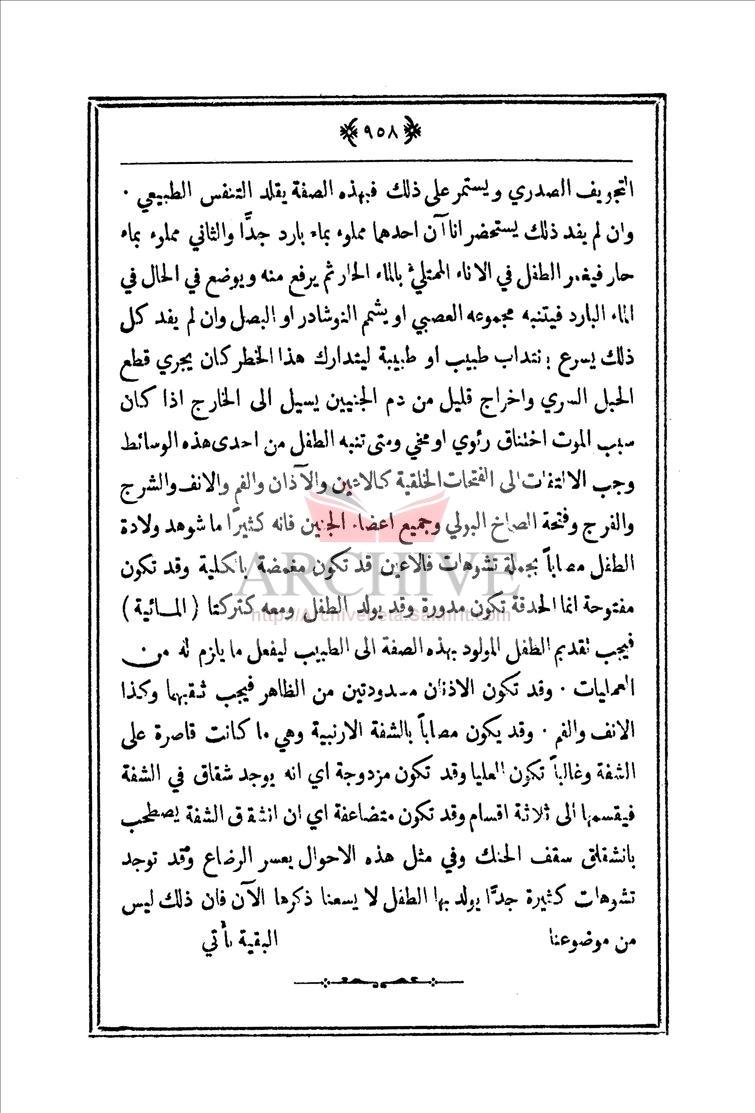 ﴿٩٥٨﴾
التجويف الصدري ويستمر على ذلك فبهذه الصفة يقلد التنفس الطبيعي ·
وان لم يفد ذلك يستحضر اناآن احدهما مملوء بماء بارد جدًّا والثاني مملوء بماء
حار فيغمر الطفل في الاناء الممتلئ بالماء الحار ثم يرفع منه ويوضع في الحال في
الماء البارد فيتنبه مجموعه العصبي او يشمم النوشادر او البصل وان لم يفد كل
ذلك يسرع بانتداب طبيب او طبيبة ليتدارك هذا الخطر كان يجري قطع
الحبل السري واخراج قليل من دم الجنيين يسيل الى الخارج اذا كان
سبب الموت اختناق رئوي او مخي ومتى تنبه الطفل من احدى هذه الوسائط
وجب الالتفات الى الفتحات الخلقية كالاعين والآذان والفم والانف والشرج
والفرج وفتحة الصماخ البولي وجميع اعضاء الجنين فانه كثيرًا ما شوهد ولادة
الطفل مصاباً بجملة تشوهات فالاعين قد تكون مغمضة بالكلية وقد تكون
مفتوحة انما الحدقة تكون مدورة وقد يولد الطفل ومعه كتركتا (المائية)
فيجب تقديم الطفل المولود بهذه الصفة الى الطبيب ليفعل ما يلزم له من
العمليات · وقد تكون الاذنان مسدودتين من الظاهر فيجب ثقبهما وكذا
الانف والفم · وقد يكون مصاباً بالشفة الارنبية وهي ما كانت قاصرة على
الشفة وغالباً تكون العليا وقد تكون مزدوجة اي انه يوجد شقاق في الشفة
فيقسمها الى ثلاثة اقسام وقد تكون متضاعفة اي ان انشقاق الشفة يصطحب
بانشقاق سقف الحنك وفي مثل هذه الاحوال يعسر الرضاع وقد توجد
تشوهات كثيرة جدًّا يولد بها الطفل لا يسعنا ذكرها الآن فان ذلك ليس
من موضوعنا البقية يأتي
ARCHIVE
http://Archivebeta.Sakhrit.com